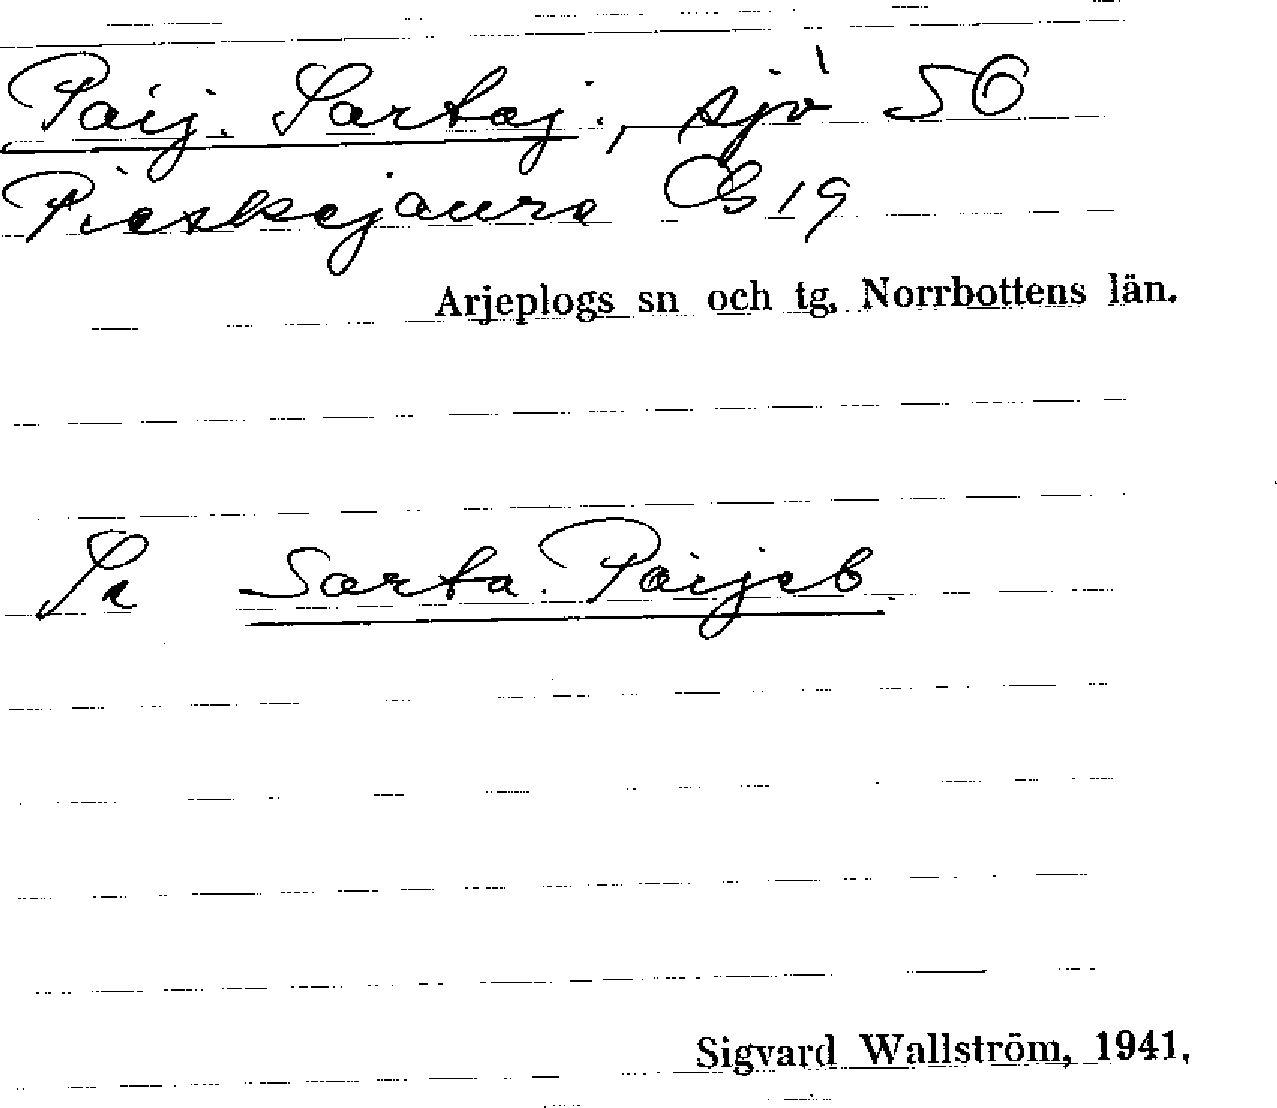 Paij. Sartaj., sjö 5C
Pieskejaure Ös 19
Arjeplogs sn och tg. Norrbottens län.
Se Sarta Paijeb
Sigvard Wallström, 1941.